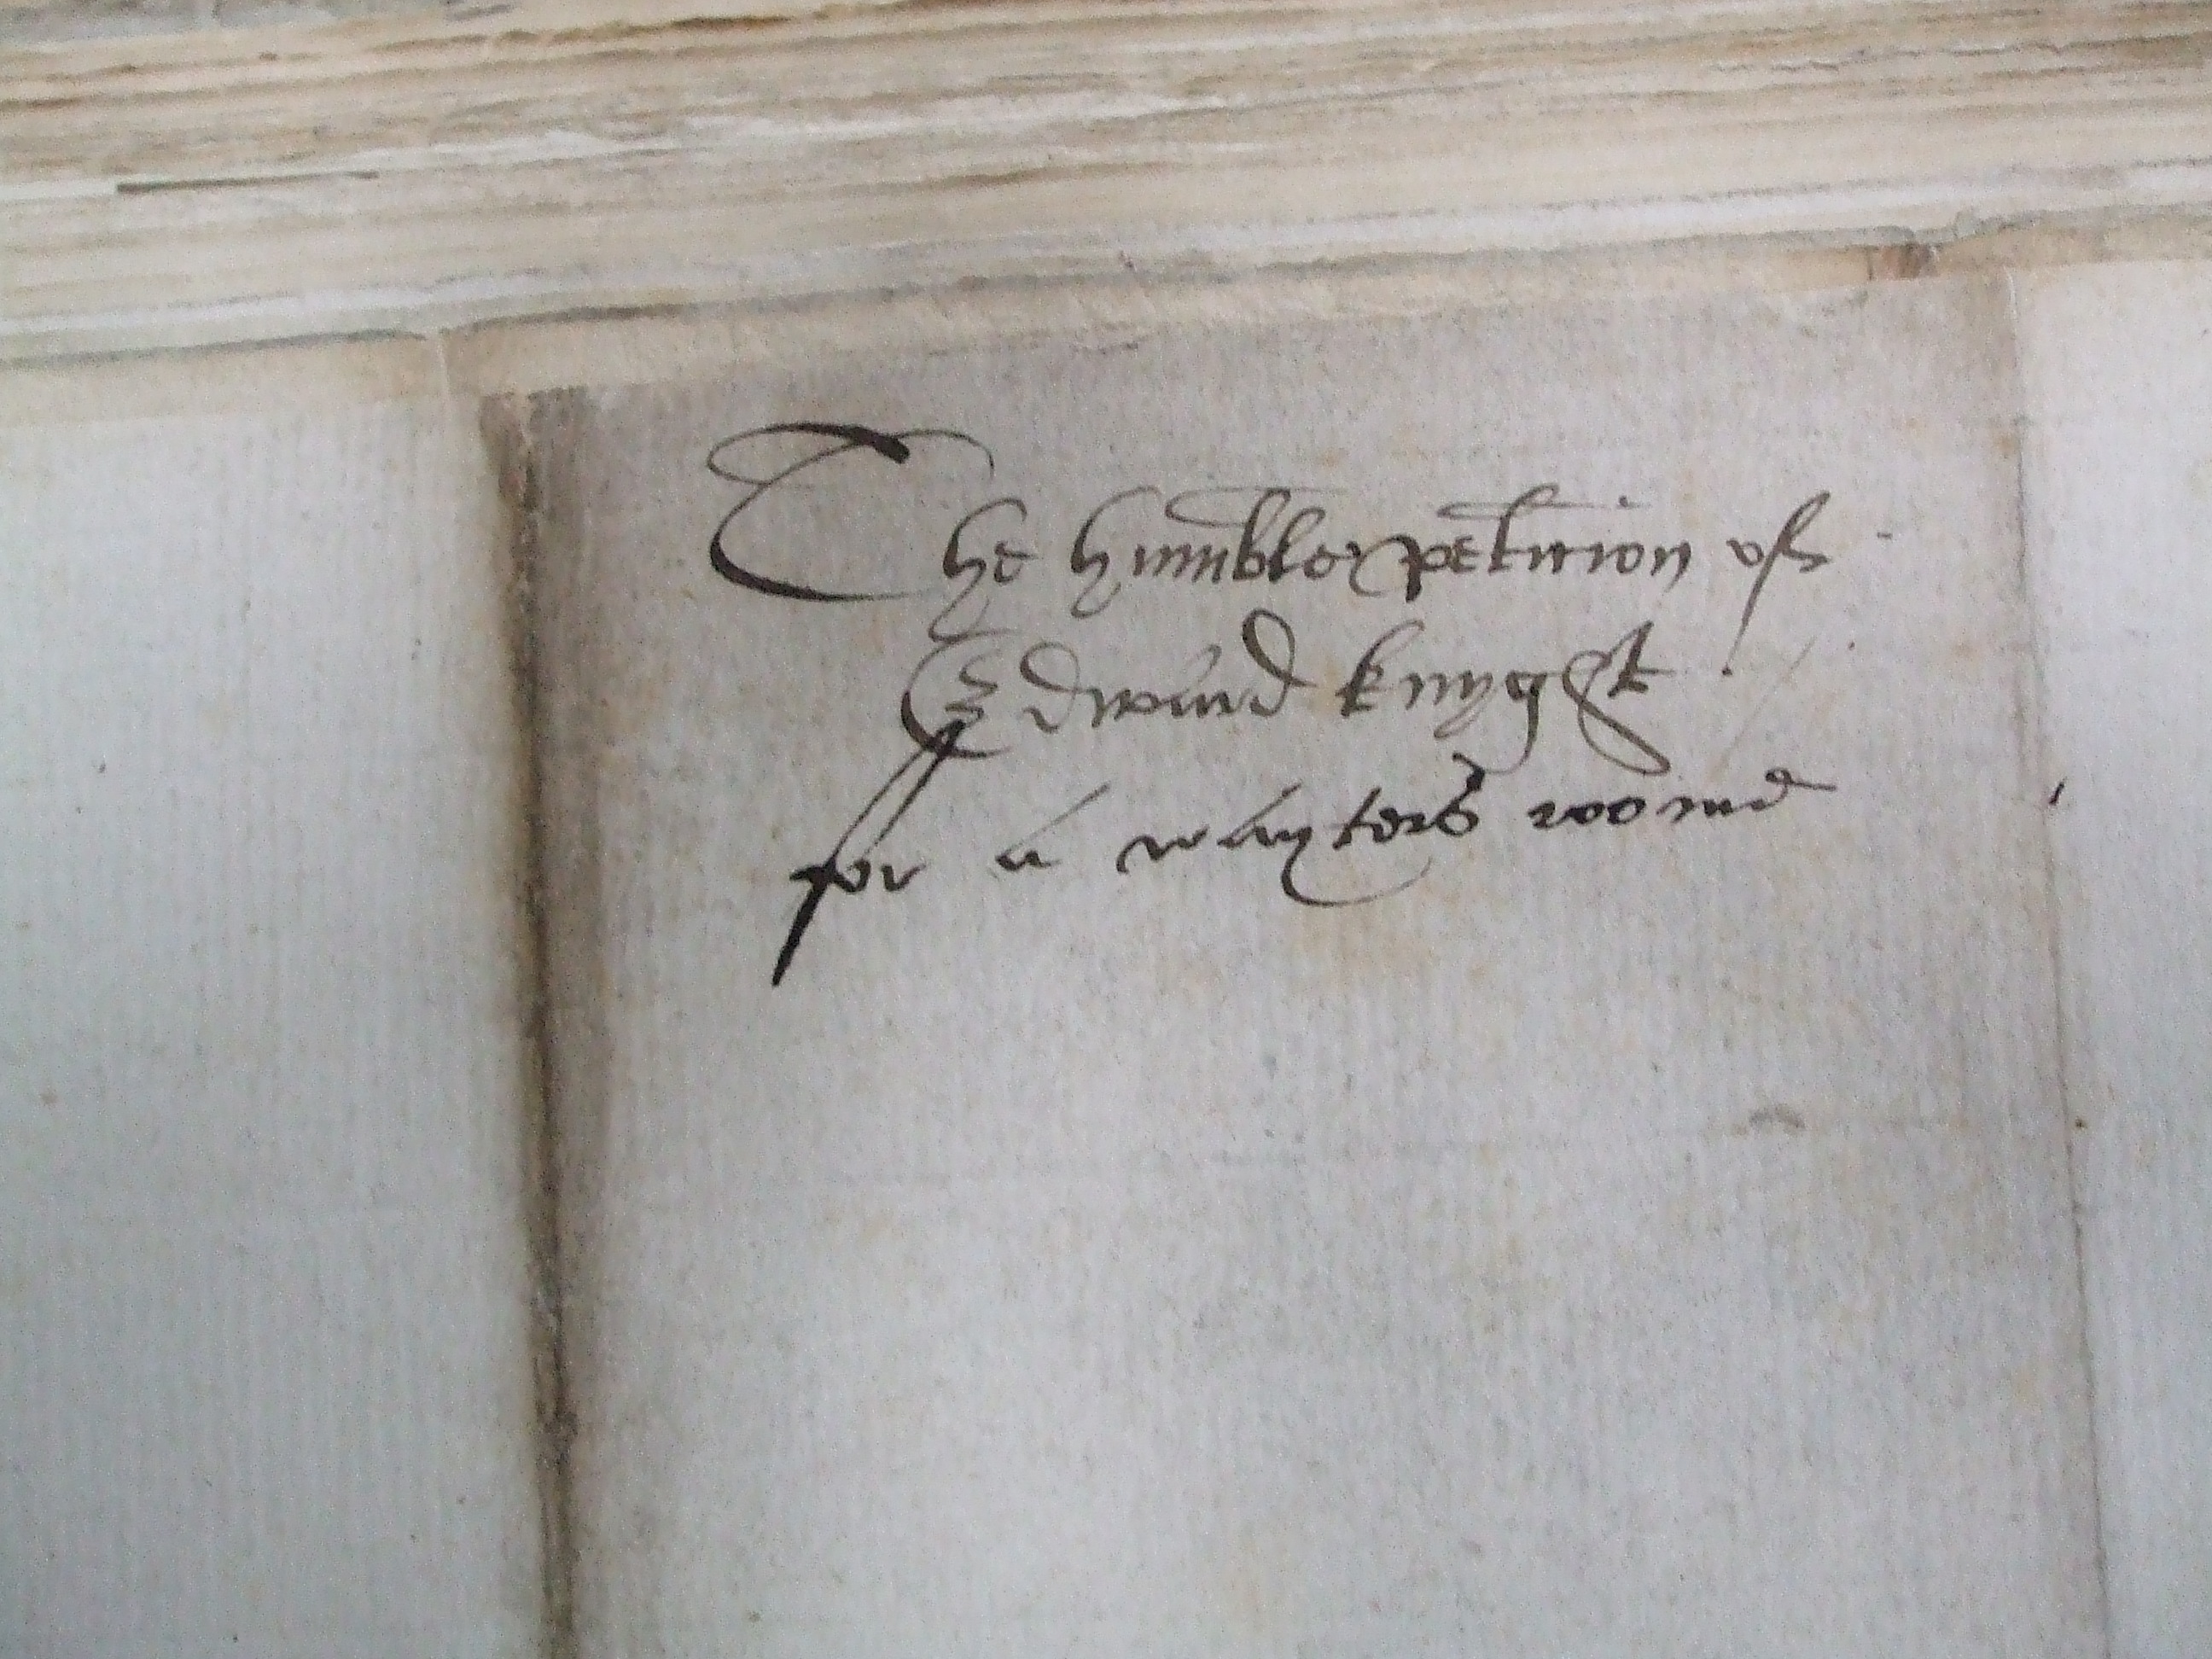 The humble petition of
Edward knyght
for a wayters roome